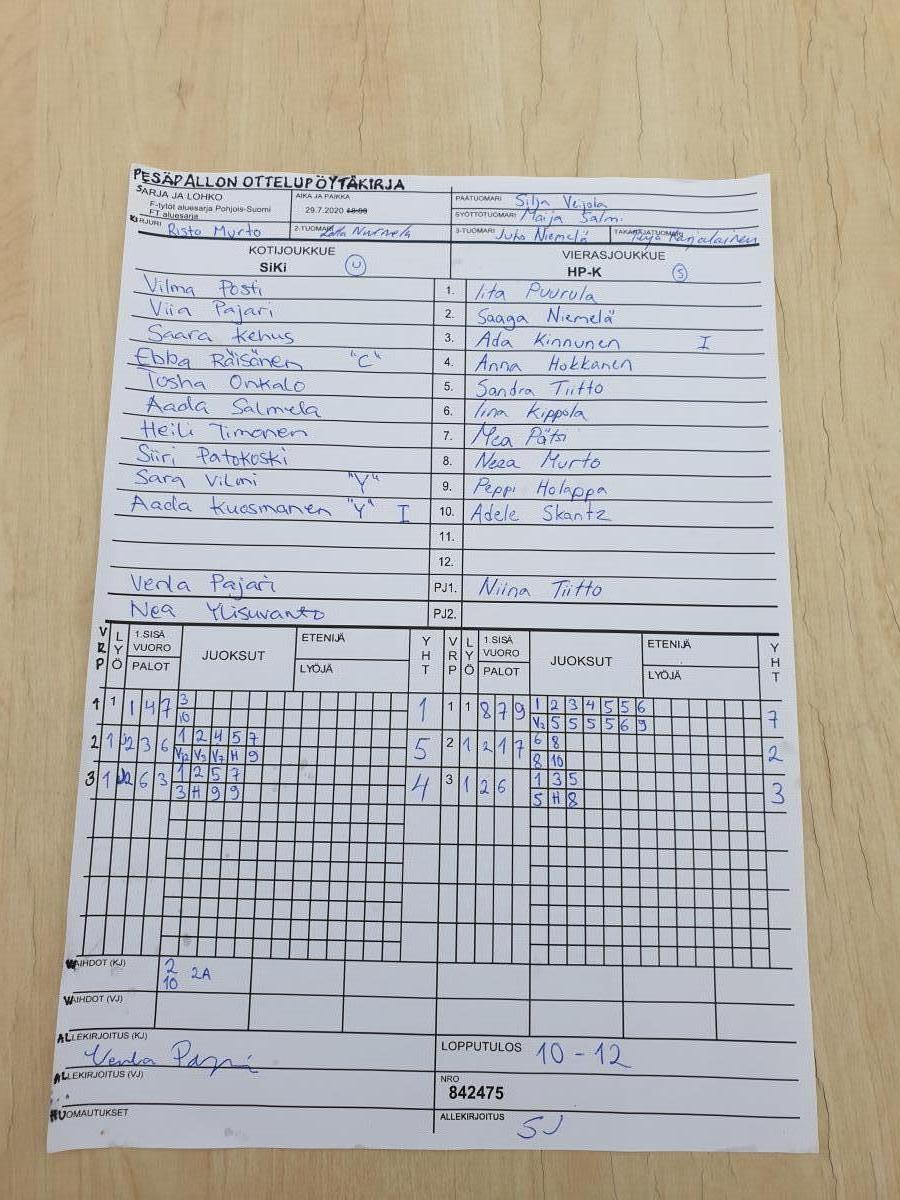 PESÄPALLON OTTELUPÖYTÄKIRJA
SARJA JA LOHKO
F-tytöt aluesarja Pohjois-Suomi
FT aluesarja
AIKA JA PAIKKA
29.7.2020
PÄÄTUOMARI Silja Veijola
SYÖTTÖTUOMARI Maija Salmi
KIRJURI Risto Murto
2-TUOMARI
3-TUOMARI Juho Niemelä
TAKARAJATUOMARI Karjalainen
KOTIJOUKKUE
SiKi U
VIERASJOUKKUE
HP-K S
Vilma Posti 1. Iita Puurula
Viia Pajari 2. Saaga Niemelä
Saara Kehus 3. Ada Kinnunen I
Ebba Räisänen "C" 4. Anna Hokkanen
Tosha Onkalo 5. Sandra Tiitto
Aada Salmela 6. Iina Kippola
Heili Timonen 7. Mea Pätsi
Siiri Patokoski 8. Neea Murto
Sara Vilmi "Y" 9. Peppi Holappa
Aada Kuosmanen "Y" I 10. Adele Skantz
11.
12.
Venla Pajari PJ1. Niina Tiitto
Nea Ylisuvanto PJ2.
VRP LYÖ 1.SISÄ VUORO PALOT JUOKSUT ETENIJÄ LYÖJÄ YHT VRP LYÖ 1.SISÄ VUORO PALOT JUOKSUT ETENIJÄ LYÖJÄ YHT
1 1 1 4 7 3 1 1 1 8 7 9 1 2 3 4 5 5 6 7
10 V2 5 5 5 5 6 9
2 1 2 3 6 1 2 4 5 7 5 2 1 2 1 7 6 8 2
V2 V3 V7 H 9 8 10
3 1 2 6 3 1 2 5 7 4 3 1 2 6 1 3 5 3
3 H 9 9 5 H 8
VAIHDOT (KJ) 2 2A
10
VAIHDOT (VJ)
ALLEKIRJOITUS (KJ)
Venla Pajari
LOPPUTULOS 10 - 12
ALLEKIRJOITUS (VJ)
NRO
842475
HUOMAUTUKSET
ALLEKIRJOITUS SJ